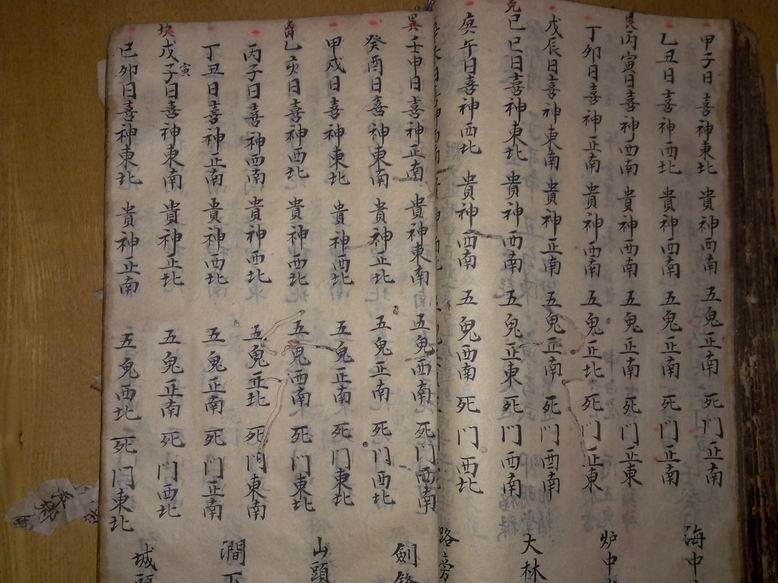 甲子日喜神東北 貴神西南 五鬼正南 死门正南
海中
乙丑日喜神西北 貴神西南 五鬼正南 死门正南
丙寅日喜神西南 貴神西南 五鬼正南 死门正東
炉中
丁卯日喜神正南 貴神西南 五鬼正北 死门正東
戊辰日喜神東南 貴神西南 五鬼正南 死门西南
大林
己巳日喜神東北 貴神西南 五鬼正東 死门西南
庚午日喜神西北 貴神西南 五鬼西南 死门西北
路旁
巽壬申日喜神正南 貴神東南 五鬼西南 死门西南
劍
癸酉日喜神東南 貴神正北 五鬼正南 死门西北
甲戌日喜神東北 貴神西北 五鬼正南 死门東北
山頭
乙亥日喜神西北 貴神西北 五鬼西南 死门東北
丙子日喜神西南 貴神西北 五鬼正北 死门東南
澗下
丁丑日喜神正南 貴神西北 五鬼正南 死门正南
戊子寅日喜神東南 貴神正北 五鬼正南 死门西北
城頭
己卯日喜神東北 貴神正南 五鬼西北 死门東北